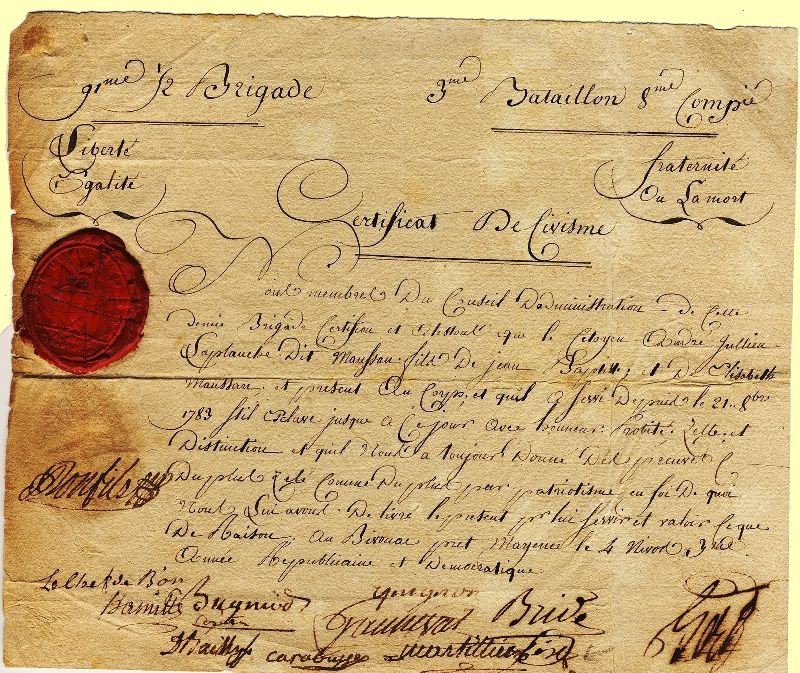 91me 1/2 Brigade
3me Bataillon 8me Compie
Liberté
Egalité
fraternité
Ou Lamort
Certificat De Civisme
Nous membres Du Conseil D'administration de Cette
demie Brigade Certifions et attestons que le Citoyen André Jullien
Laplanche Dit Maussan fils De jean Baptiste et D'Elisabeth
Maussan, et present Au Corps, et quil a servi Depuis le 21 8bre
1783 stil Esclave jusque à Ce jour avec honneur Probité Zelle, et
Distinction et quil Nous a toujours Donné Des preuves
Du plus Zelé Comme Du plus pur patriotisme, en foi De quoi
Nous Lui avons De livré le present pr lui servir et valoir Ce que
De Raison. Au Bivouac pret Mayence le 4 Nivos 3me
Année Republicaine et Democratique
Bonfils
Le Chef de B'on
Bride
D'Bailly
Carabusse